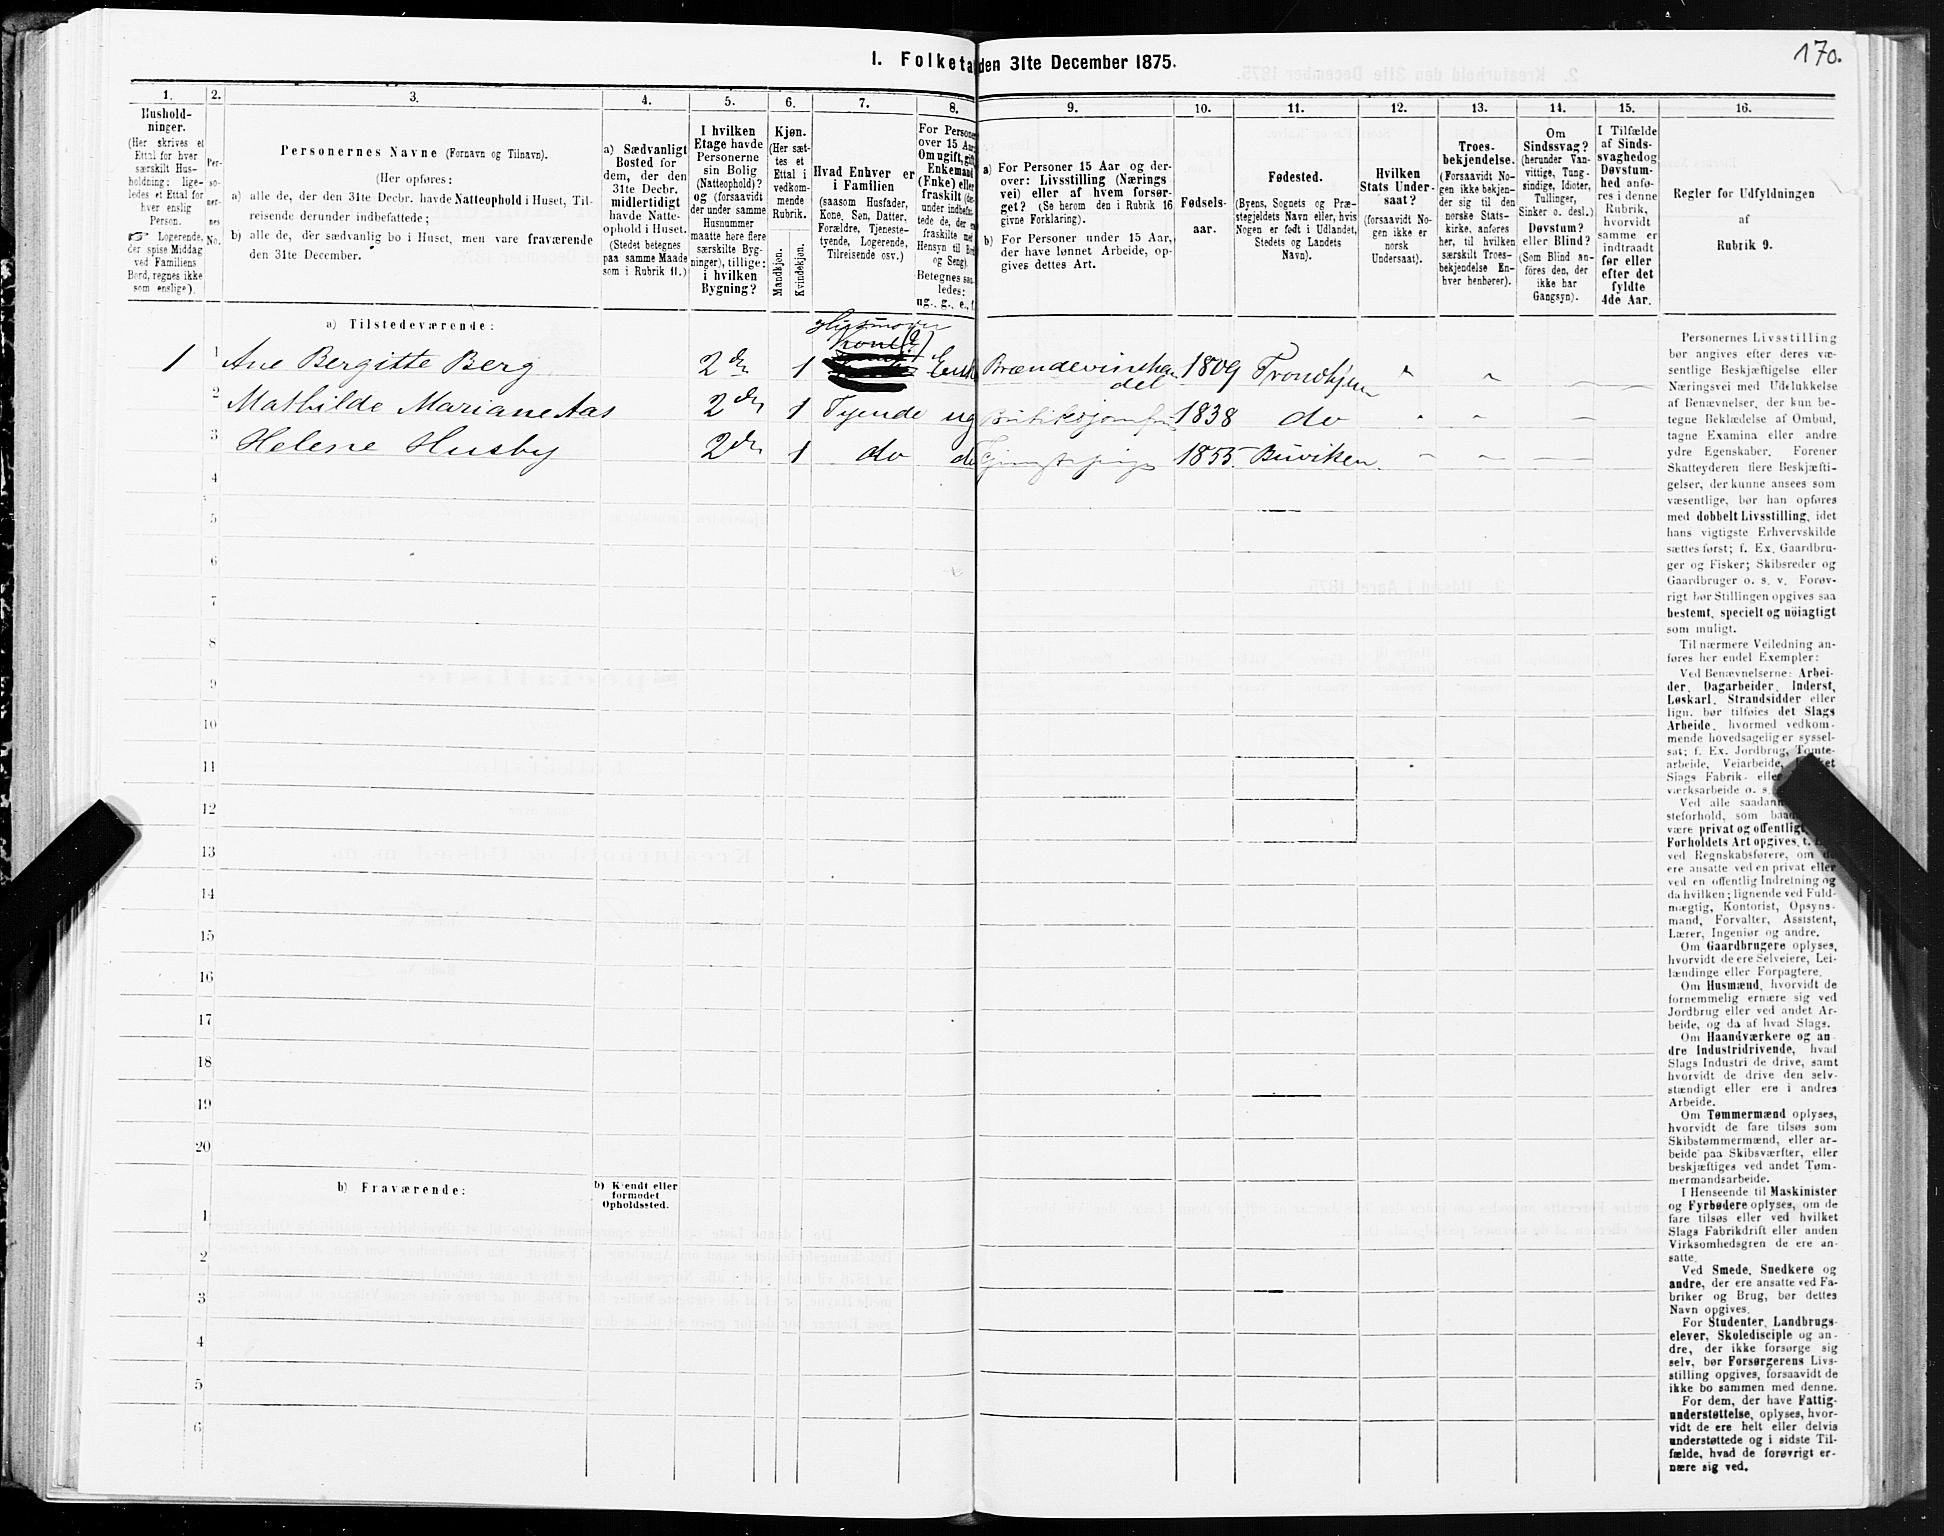 170.
I. Folketa den 31te December 1875.
1. 2. 3. 4. 5. 6. 7. 8. 9. 10. 11. 12. 13. 14. 15. 16.
Hushold-
ninger.
(Her skrives et
Ettal for hver
særskilt Hus-
holdning; lige-
ledes et Ettal for
hver enslig
Person.
☞ Logerende,
der spise Middag
ved Familiens
Bord, regnes ikke
som enslige).
Per-
so-
ner-
nes
No.
Personernes Navne (Fornavn og Tilnavn).
(Her opføres:
a) alle de, der den 31te Decbr. havde Natteophold i Huset, Til-
reisende derunder indbefattede;
b) alle de, der sædvanlig bo i Huset, men vare fraværende
den 31te December.
a) Sædvanligt
Bosted for
dem, der den
31te Decbr.
midlertidigt
havde Natte-
ophold i Huset.
(Stedet betegnes
paa samme Maade
som i Rubrik 11.)
I hvilken
Etage havde
Personerne
sin Bolig
(Natteophold)?
og (forsaavidt
der under samme
Husnummer
maatte høre flere
særskilte Byg-
ninger), tillige:
i hvilken
Bygning?
Kjøn.
(Her sæt-
tes et
Ettal i
vedkom-
mende
Rubrik.
Mandkjøn.
Kvindekjøn.
Hvad Enhver er
i Familien
(saasom Husfader,
Kone, Søn, Datter,
Forældre, Tjeneste-
tyende, Logerende,
Tilreisende osv.)
For Persone
over 15 Aar
Om ugift, gift
Enkemand
(Enke) eller
fraskilt (de
under indbefat
tede de, der e
fraskilte med
Hensyn til Bo
og Seng).
Betegnes saa
ledes:
ug., g., e., f.
a) For Personer 15 Aar og der-
over: Livsstilling (Nærings
vei) eller af hvem forsør-
get? (Se herom den i Rubrik 16
givne Forklaring).
b) For Personer under 15 Aar,
der have lønnet Arbeide, op-
gives dettes Art.
Fødsels-
aar.
Fødested.
(Byens, Sognets og Præ-
stegjeldets Navn eller, hvis
Nogen er født i Udlandet,
Stedets og Landets
Navn).
Hvilken
Stats Under-
saat?
(forsaavidt No-
gen ikke er
norsk
Undersaat).
Troes-
bekjendelse.
(Forsaavidt No-
gen ikke bekjen-
der sig til den
norske Stats-
kirke, anføres
her, til hvilken
særskilt Troes-
bekjendelse En-
hver henhører).
Om
Sindssvag?
(herunder Van-
vittige, Tung-
sindige, Idioter,
Tullinger,
Sinker o. desl.)
Døvstum?
eller Blind?
(Som Blind an-
føres den, der
ikke har
Gangsyn).
I Tilfælde
af Sinds-
svaghedog
Døvstum-
hed anfø-
res i denne
Rubrik,
hvorvidt
samme er
indtraadt
før eller
efter det
fyldte
4de Aar.
Regler for Udfyldningen
af
Rubrik 9.
a) Tilstedeværende:
Husmoder
Kone (?)
1 1 Ane Bergitte Berg 2den 1 Enke Brændevinshan 1809 Trondhjem " " — —
del
2 Mathilde Mariane Aas 2den 1 Tyende ug Butiksjomfru 1838 do " " — —
3 Helene Husby 2den 1 do do Tjenestepige 1855. Buviken — — — —
4
5
6
7
8
9
10
11
12
13
14
15
16
17
18
19
20
b) Fraværende:
b) Kjendt eller
formodet
Opholdssted.
1
2
3
4
5
6
Personernes Livsstilling
bør angives efter deres væ-
sentlige Beskjæftigelse eller
Næringsvei med Udelukkelse
af Benævnelser, der kun be-
tegne Beklædelse af Ombud,
tagne Examina eller andre
ydre Egenskaber. Forener
Skatteyderen flere Beskjæfti-
gelser, der kunne ansees som
væsentlige, bør han opføres
med dobbelt Livsstilling, idet
hans vigtigste Erhvervskilde
sættes først; f. Ex. Gaardbru-
ger og Fisker; Skibsreder og
Gaardbruger o. s. v. Forøv-
rigt bør Stillingen opgives saa
bestemt, specielt og nøiagtigt
som muligt.
Til nærmere Veiledning an-
føres her endel Exempler:
Ved Benævnelserne: Arbei-
der, Dagarbeider, Inderst,
Løskarl, Strandsidder eller
lign. bør tilføies det Slags
Arbeide, hvormed vedkom-
mende hovedsagelig er syssel-
sat; f. Ex. Jordbrug, Tomte-
arbeide, Veiarbeide, ket
Slags Fabrik- eller
værksarbeide o. s.
Ved alle saadan
steforhold, som baa
være privat og offentligt
Forholdets Art opgives, t.
ved Regnskabsførere, om de
ere ansatte ved en privat eller
ved en offentlig Indretning og
da hvilken; lignende ved Fuld-
mægtig, Kontorist, Opsyns-
mand, Forvalter, Assistent,
Lærer, Ingeniør og andre.
Om Gaardbrugere oplyses,
hvorvidt de ere Selveiere, Lei-
lændinge eller Forpagtere.
Om Husmænd, hvorvidt de
fornemmelig ernære sig ved
Jordbrug eller ved andet Ar-
beide, og da af hvad Slags.
Om Haandværkere og an
dre Industridrivende, hvad
Slags Industri de drive, samt
hvorvidt de drive den selv-
stændigt eller ere i andres
Arbeide.
Om Tømmermænd oplyses,
hvorvidt de fare tilsøs som
Skibstømmermænd, eller ar-
beide paa Skibsværfter, eller
beskjæftiges ved andet Tøm-
mermandsarbeide.
I Henseende til Maskinister
og Fyrbødere oplyses, om de
fare tilsøs eller ved hvilket
Slags Fabrikdrift eller anden
Virksomhedsgren de ere an-
satte.
Ved Smede, Snedkere og
andre, der ere ansatte ved Fa-
briker og Brug, bør dettes
Navn opgives.
For Studenter, Landbrugs-
elever, Skoledisciple og an-
dre, der ikke forsørge sig
selv, bør Forsørgerens Livs-
stilling opgives, forsaavidt de
ikke bo sammen med denne.
For dem, der have Fattig-
understøttelse, oplyses, hvor-
vidt de ere helt eller delvis
understøttede og i sidste Til-
fælde, hvad de forøvrigt er-
nære sig ved.